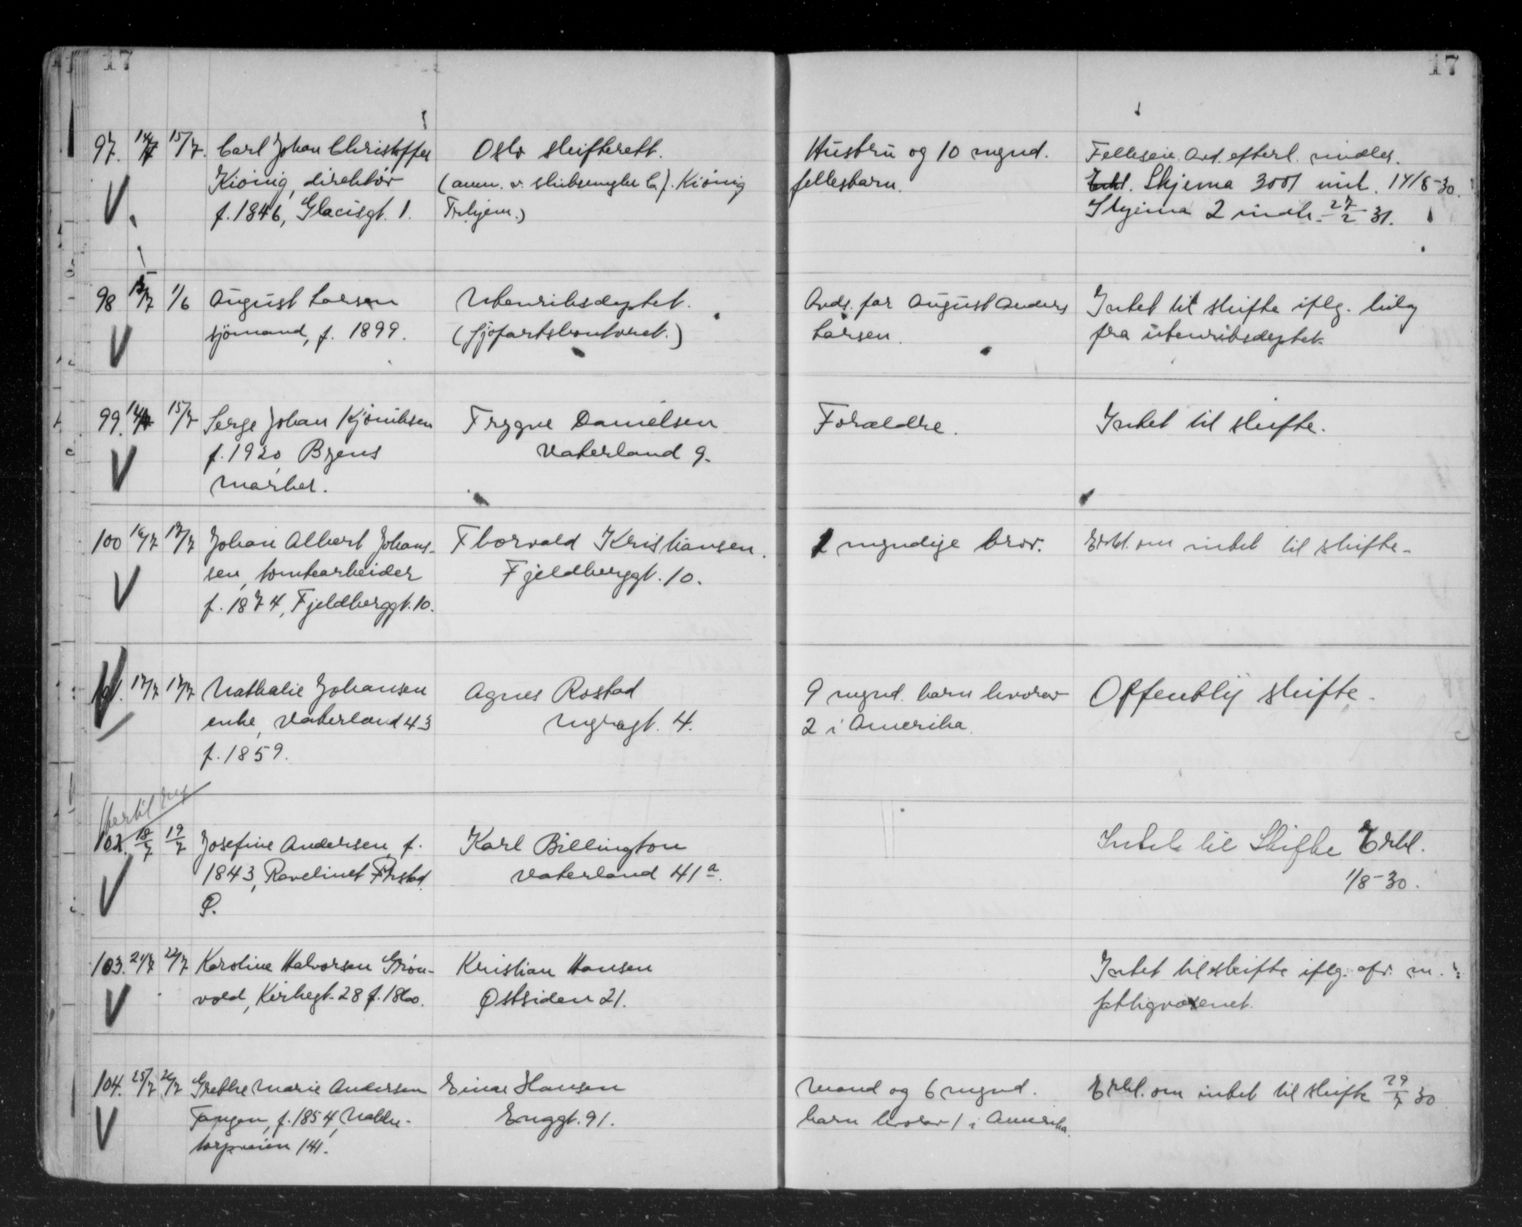 17
17
97. 14/7 15/7. Carl Johan Christoffer
Kiönig, direktör
f. 1846, Glacisgt. 1.
Oslo skifterett.
(anm. v. skibsmegler C. J. Kiönig
Trhjem.)
Hustru og 10 mynd.
fellesbarn.
Felleseie. Avd. efterl. midler.
Erkl. Skjema 3001 innl. 14/8-30.
Skjema 2 indk. 27/2 31.
98 15/7 1/6 August Larsen
sjömand, f. 1899.
Utenriksdeptet.
(Sjöfartskontoret.)
Avds. far August Anders
Larsen.
Intet til skifte iflg.
fra utenriksdeptet.
99. 14/7 15/7 Serge Johan Kjöniksen
f. 1920 Byens
marker.
Trygve Danielsen
Vaterland 9.
Forældre.
Intet til skifte.
100 16/7 17/7 Johan Albert Johan-
sen, tomtearbeider
f. 1874, Fjeldberggt. 10.
Thorvald Kristiansen.
Fjeldberggt. 10.
1 myndige bror.
Erkl. om intet til skifte.
101. 17/7 17/7 Nathalie Johansen
enke, Vaterland 43
f. 1859.
Agnes Rostad
Nygt. 4.
9 mynd. barn hvorav
2 i Amerika.
Offentlig skifte.
Hertil
102. 18/7 19/7 Josefine Andersen f.
1843, Ravelinet Frstad
P.
Karl Billington
Vaterland 41a.
Intet til Skifte Erkl.
1/8-30.
103. 21/7 22/7 Karoline Halvorsen Grön-
vold, Kirkegt. 28 f. 1860.
Kristian Hansen
Østsiden 21.
Intet til skifte iflg. m.
fattigvæsenet.
104. 25/7 26/7 Grethe Marie Andersen
Tangen, f. 1854,
141.
Einar Hansen
Enggt. 91.
Mand og 6 mynd.
barn hvorav 1 i Amerika.
Erkl. om intet til skifte 29/7 30